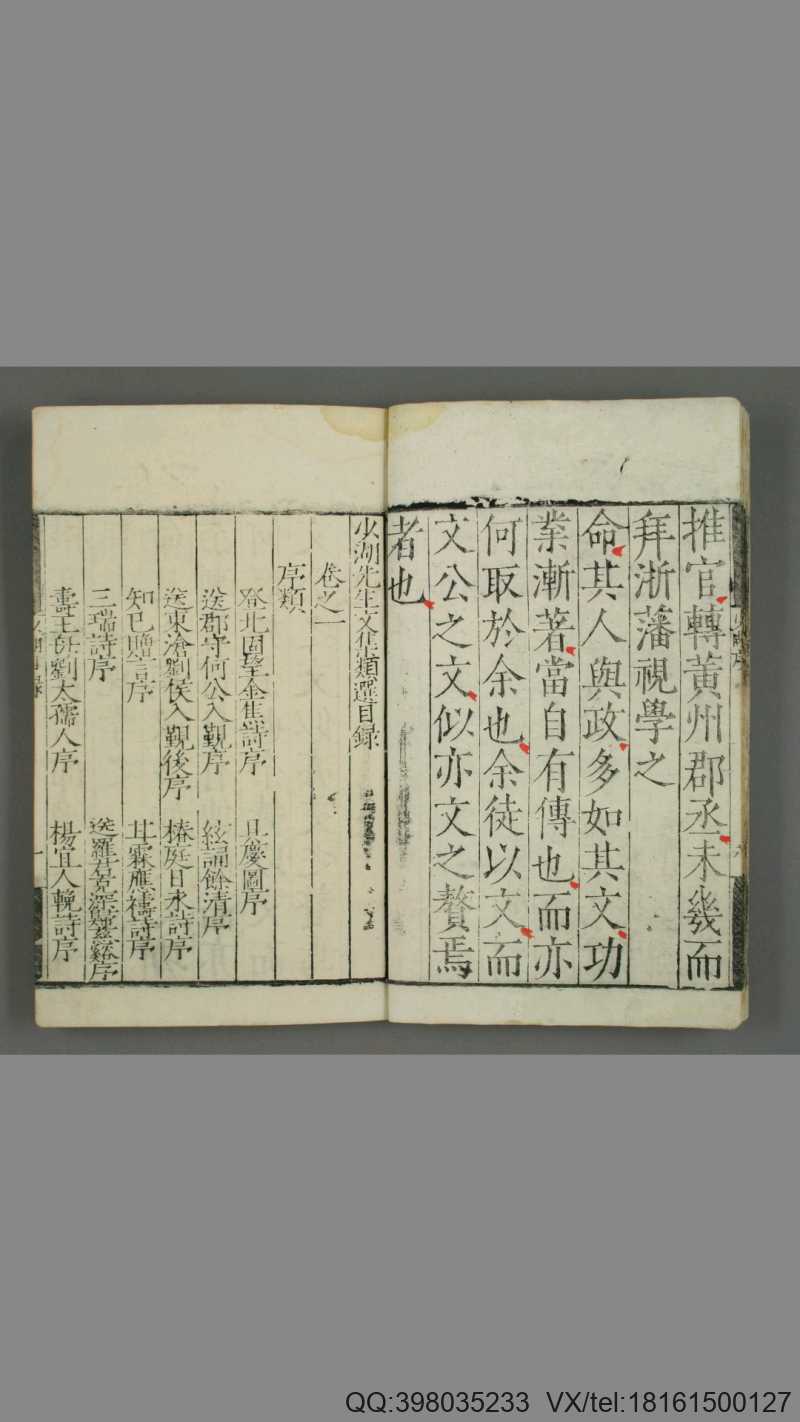 推官轉黃州郡丞未幾而
拜浙藩視學之
命其人與政多如其文功
業漸著當自有傳也而亦
何取於余也余徒以文而
文公之文似亦文之贅焉
者也
少湖先生文集類選目録
卷之一
序類
登北固望金焦詩序 具慶圖序
送郡守何公入覲序 絃誦餘清序
送東滄劉侯入覲後序 椿庭日永詩序
知已贈言序 甘霖應禱詩序
三瑞詩序
壽王母劉太孺人序 楊宜人輓詩序
QQ:398035233 VX/tel:18161500127